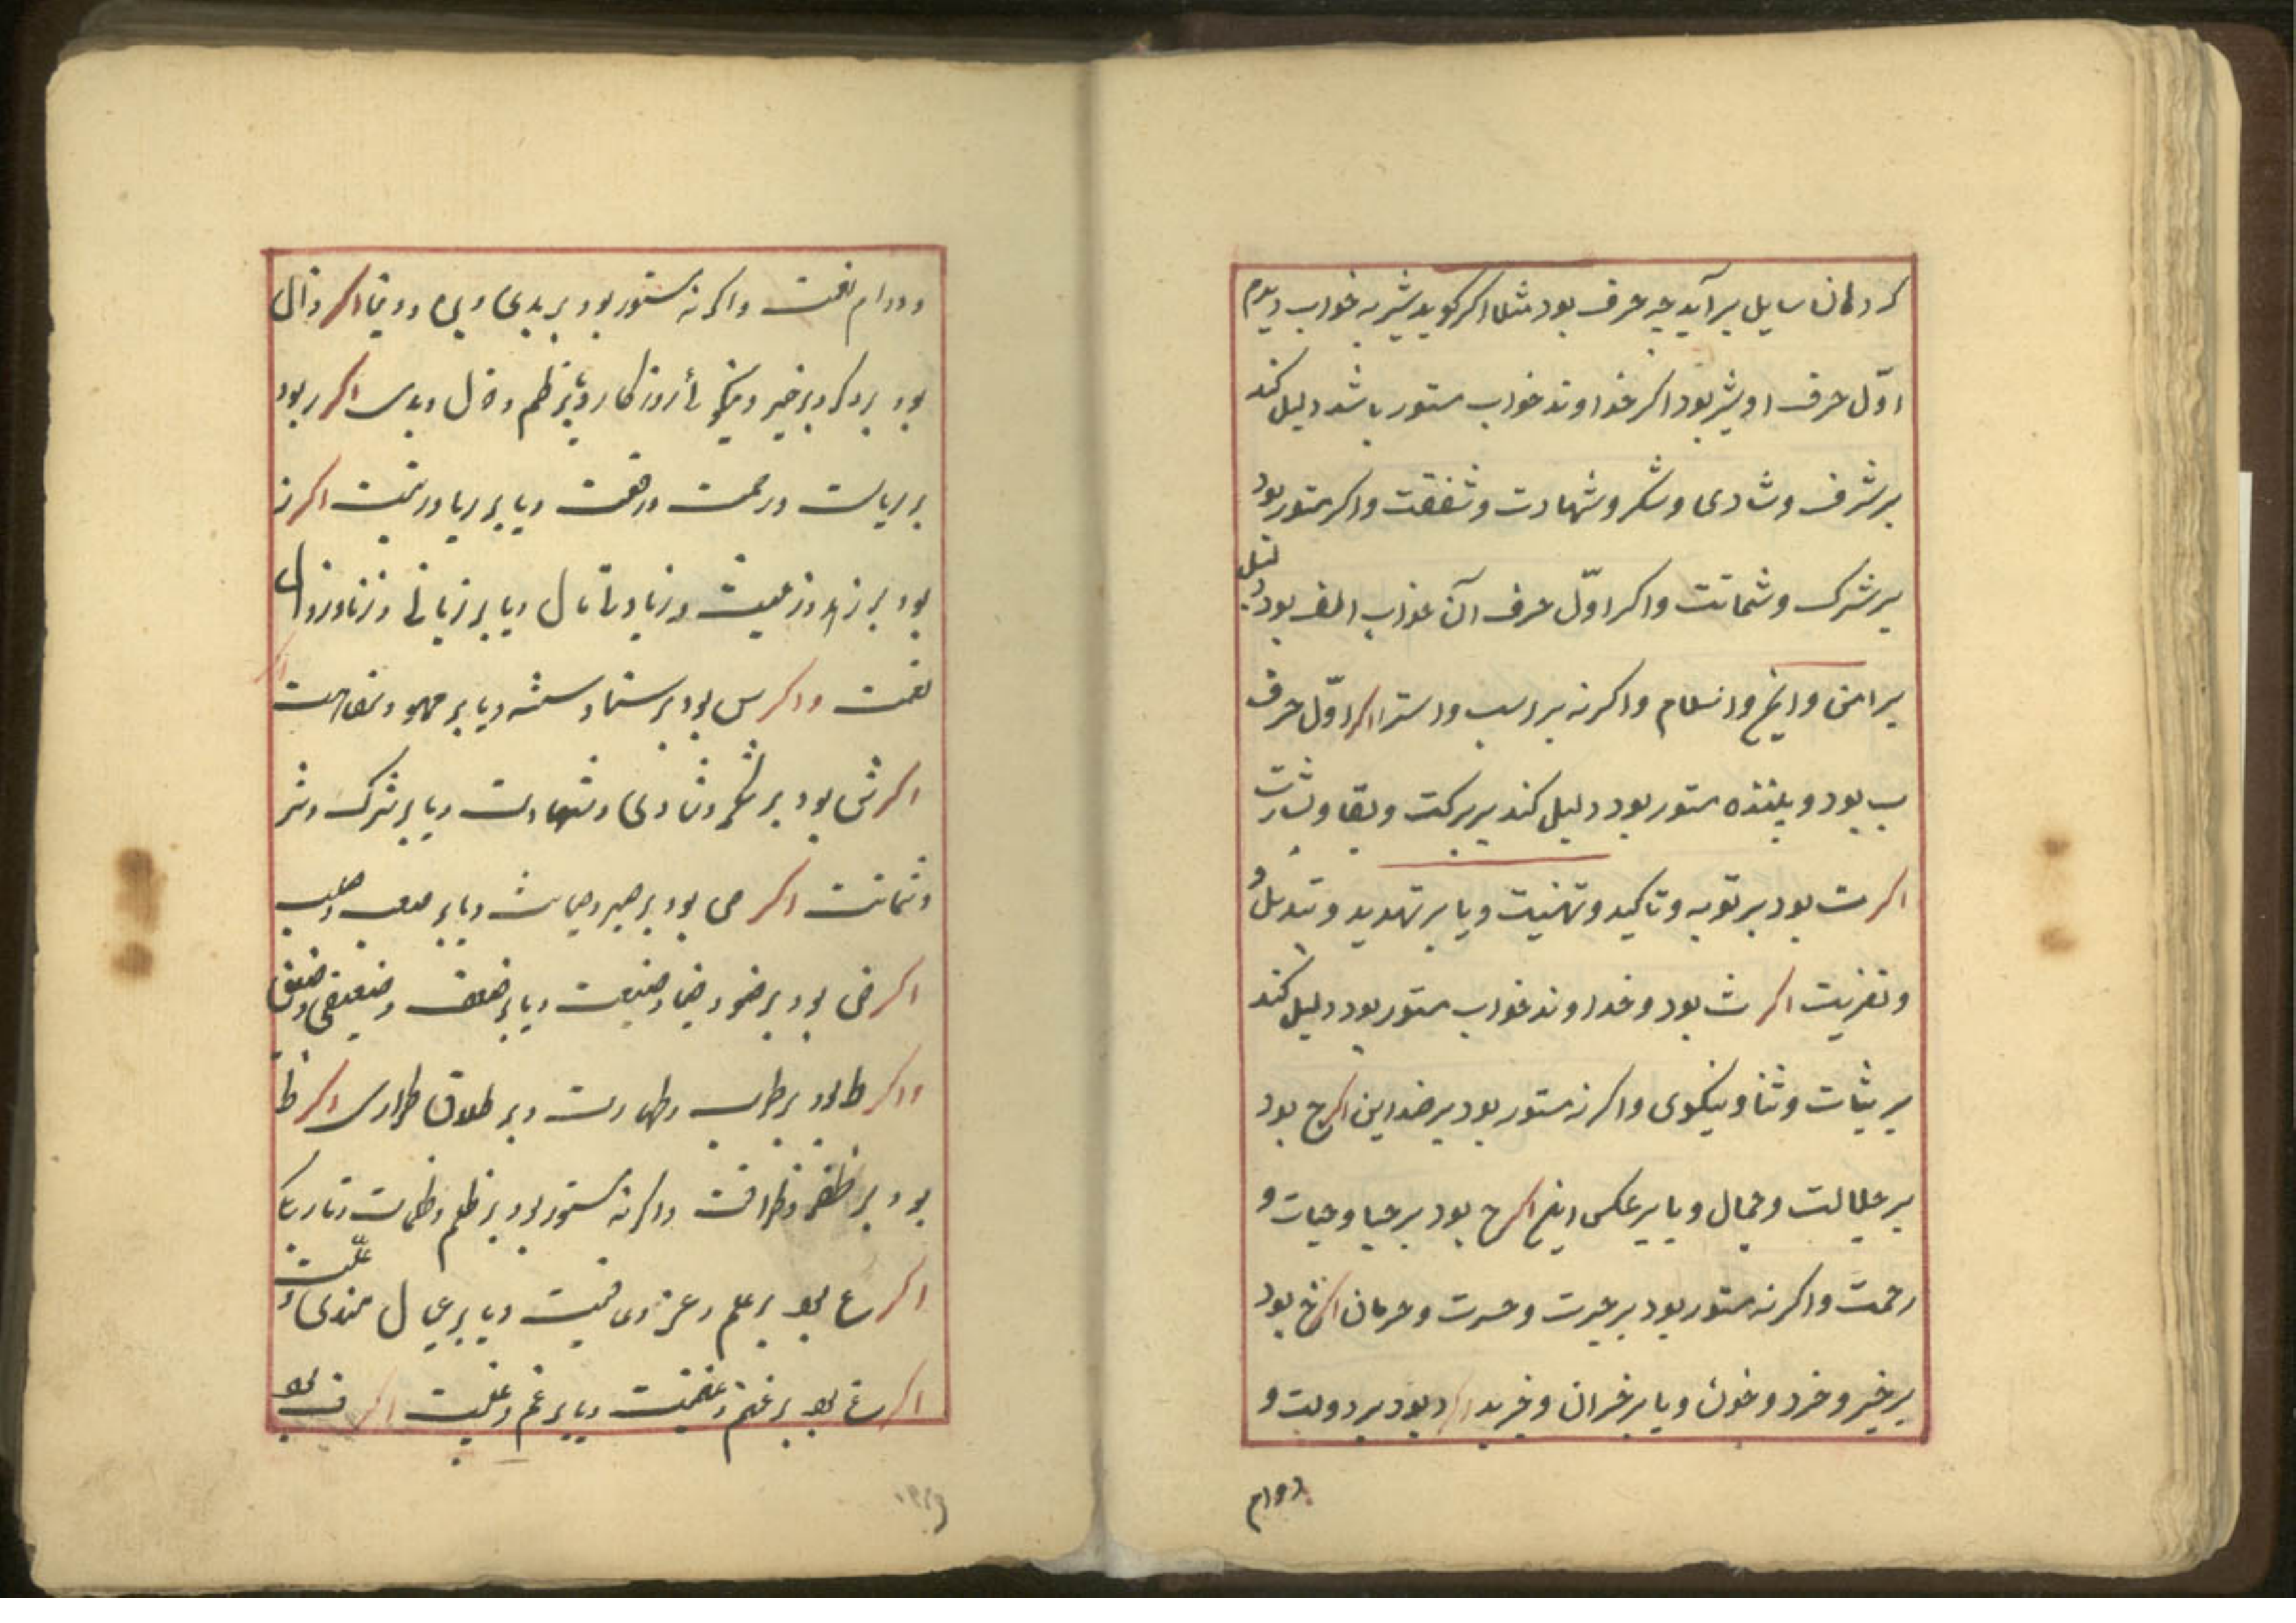 کز دهان سایل برآید چه حرف بود مثلا اکر کوید شیر به خواب دیدم
اوّل حرف او شیر بود اکر خداوند خواب مستور باشد دلیل کند
بر شرف و شادی و شکر و شهادت و شفقت و اکر مستور بود
بر شرک و شماتت و اکر اوّل حرف آن خواب الف بود دلیل
بر امن و انعام و اکر نه بر اسب و استر اکر اوّل حرف
ب بود و بیننده مستور بود دلیل کند بر برکت و بقا و بشارت
اکر ت بود بر توبه و تاکید و تهنیت و یا بر تهدید و تبدیل و
و تعزیت اکر ث بود و خداوند خواب مستور بود دلیل کند
بر ثبات و ثنا و نیکوی و اکر نه مستور بود بر ضد این اکر ج بود
بر جلالت و جمال و یا بر عکس این اکر ح بود بر حیا و حیات و
رحمت و اکر نه مستور بود بر حیرت و حسرت و حرمان اکر خ بود
بر خیر و خرد و خون و یا بر خسران و اکر د بود بر دولت و
دوام
و دوام نعمت و اکر نه مستور بود بر بدی و اکر ذال
بود بر ذکر و بر خیر و روزکار و یا بر ظلم و ذل و بدی اکر ر بود
بر ریاست و رحمت و رفعت و یا بر ریا و اکر ز
بود بر زهد و زینت و زیادتی مال و یا بر زیانی و زنا و زوال
نعمت و اکر س بود بر و یا بر سهو و سفاهت
اکر ش بود بر شکر و شادی و شهادت و یا بر شرک و شر
و شماتت اکر ص بود بر صبر و صیانت و یا بر صعب و صلب
اکر ض بود بر ضو و ضیا و ضیعت و یا بر ضعف و ضعیفی و ضیق
و اکر ط بود بر طرب و طهارت و بر طلاق و طراری اکر ظ
بود بر ظفر و ظرافت و اکر نه مستور بود بر ظلم و ظلمات و تاریکی
اکر ع بود بر علم و عز و یا بر عیال مندی و علّت
اکر غ بود بر غنم و غنیمت و یا بر غم و غیبت اکر ف بود